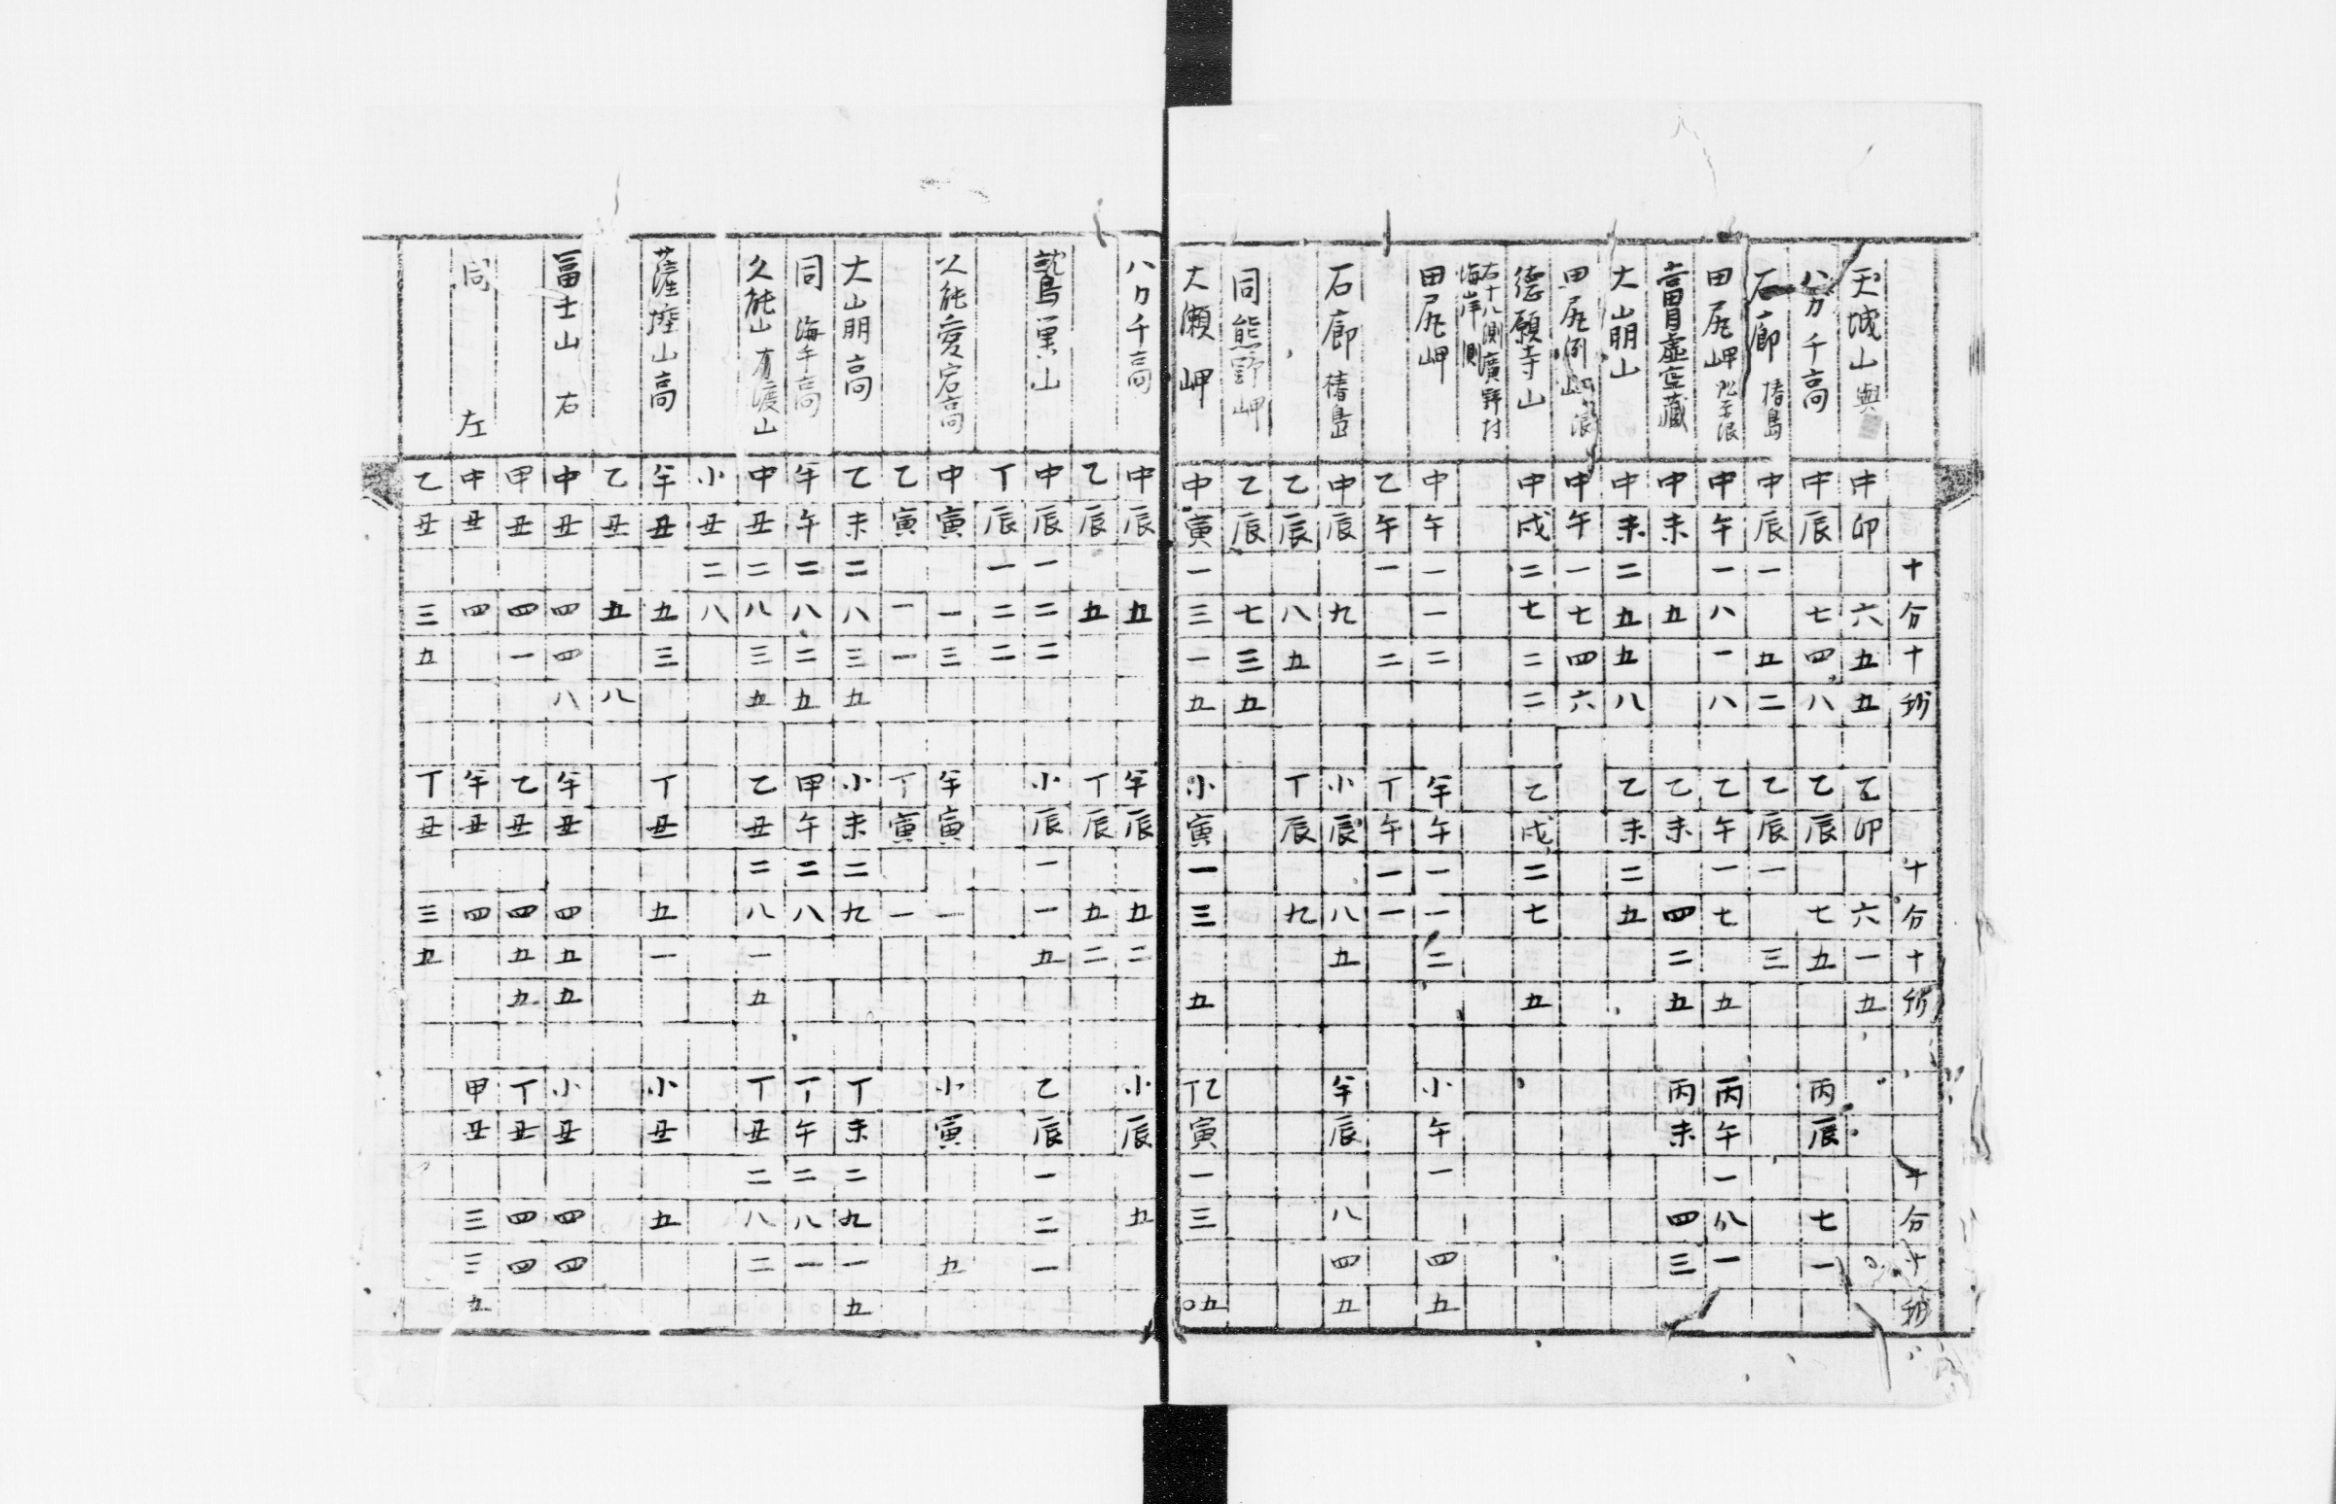 十分十秒 十分十秒 十分十秒
天城山 與 中卯六五五 乙卯六一五
八力千高 中辰七四八 乙辰七五 丙辰七一
石廊 椿島 中辰一五二 乙辰一三
田尻岬 中午一八一八 乙午一七五 丙午一八一
當目虚空藏 中未五 乙未四二五 丙未四三
大山崩山 中未二五五八 乙未二五
田尻 中午一七四六
徳願寺山 中戌二七二二 乙戌二七五
右十八測廣野村
海岸測
田尻岬 中午一一二 午午一一二 小午一四五
乙午一二 丁午一一
石廊 椿島 中辰九 小辰八五 午辰八四五
乙辰八五 丁辰九
同熊野岬 乙辰七三五
大瀬岬 中寅一三一五 小寅一三五 丁乙寅一三〇五
八力千高 中辰五 午辰五二 小辰五
乙辰五 丁辰五二
中辰一二二 小辰一一五 乙辰一二一
丁辰一二二
久能愛宕高 中寅一三 午寅一 小寅五
乙寅一一 丁寅一
大山崩高 乙未二八三五 小未二九 丁未二九一五
同 海午高 午午二八二五 甲午二八 丁午二八一
久能山 有渡山 中丑二八三五 乙丑二八一五 丁丑二八二
小丑二八
薩埵山高 午丑五三 丁丑五一 小丑五
乙丑五八
冨士山 右 中丑四四八 午丑四五五 小丑四四
甲丑四一 乙丑四五九 丁丑四四
同 左 中丑四 午丑四 甲丑三三五
乙丑三五 丁丑三五